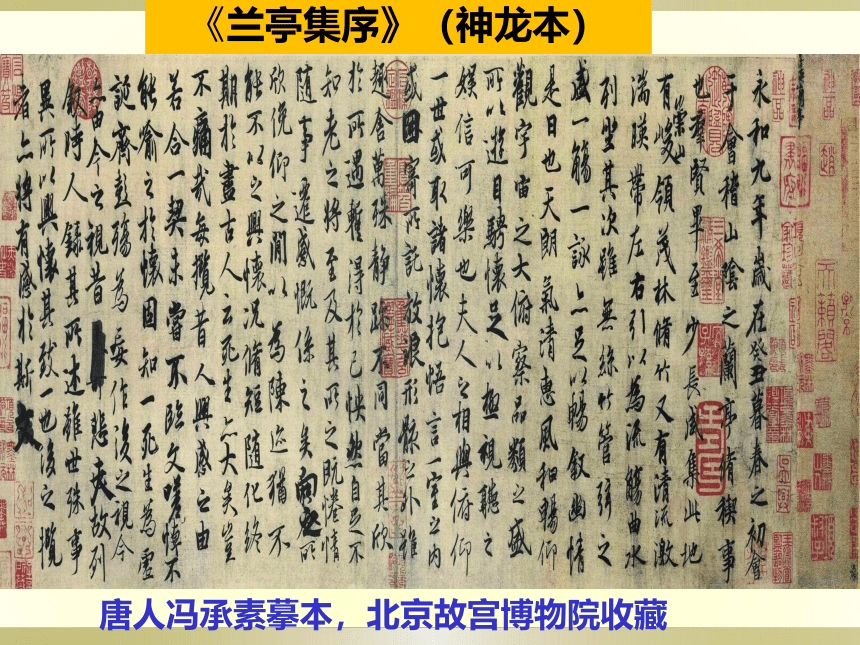 《兰亭集序》（神龙本）
永和九年歲在癸丑暮春之初會
于會稽山陰之蘭亭脩禊事
也羣賢畢至少長咸集此地
有崇山峻領茂林脩竹又有清流激
湍暎帶左右引以為流觴曲水
列坐其次雖無絲竹管弦之
盛一觴一詠亦足以暢敘幽情
是日也天朗氣清惠風和暢仰
觀宇宙之大俯察品類之盛
所以遊目騁懷足以極視聽之
娛信可樂也夫人之相與俯仰
一世或取諸懷抱悟言一室之內
或因寄所託放浪形骸之外雖
趣舍萬殊靜躁不同當其欣
於所遇暫得於己怏然自足不
知老之將至及其所之既惓情
隨事遷感慨係之矣向之所
欣俛仰之閒以為陳迹猶不
能不以之興懷況脩短隨化終
期於盡古人云死生亦大矣豈
不痛哉每攬昔人興感之由
若合一契未嘗不臨文嗟悼不
能喻之於懷固知一死生為虛
誕齊彭殤為妄作後之視今
亦由今之視昔悲夫故列
敘時人錄其所述雖世殊事
異所以興懷其致一也後之攬
者亦將有感於斯文
唐人冯承素摹本，北京故宫博物院收藏